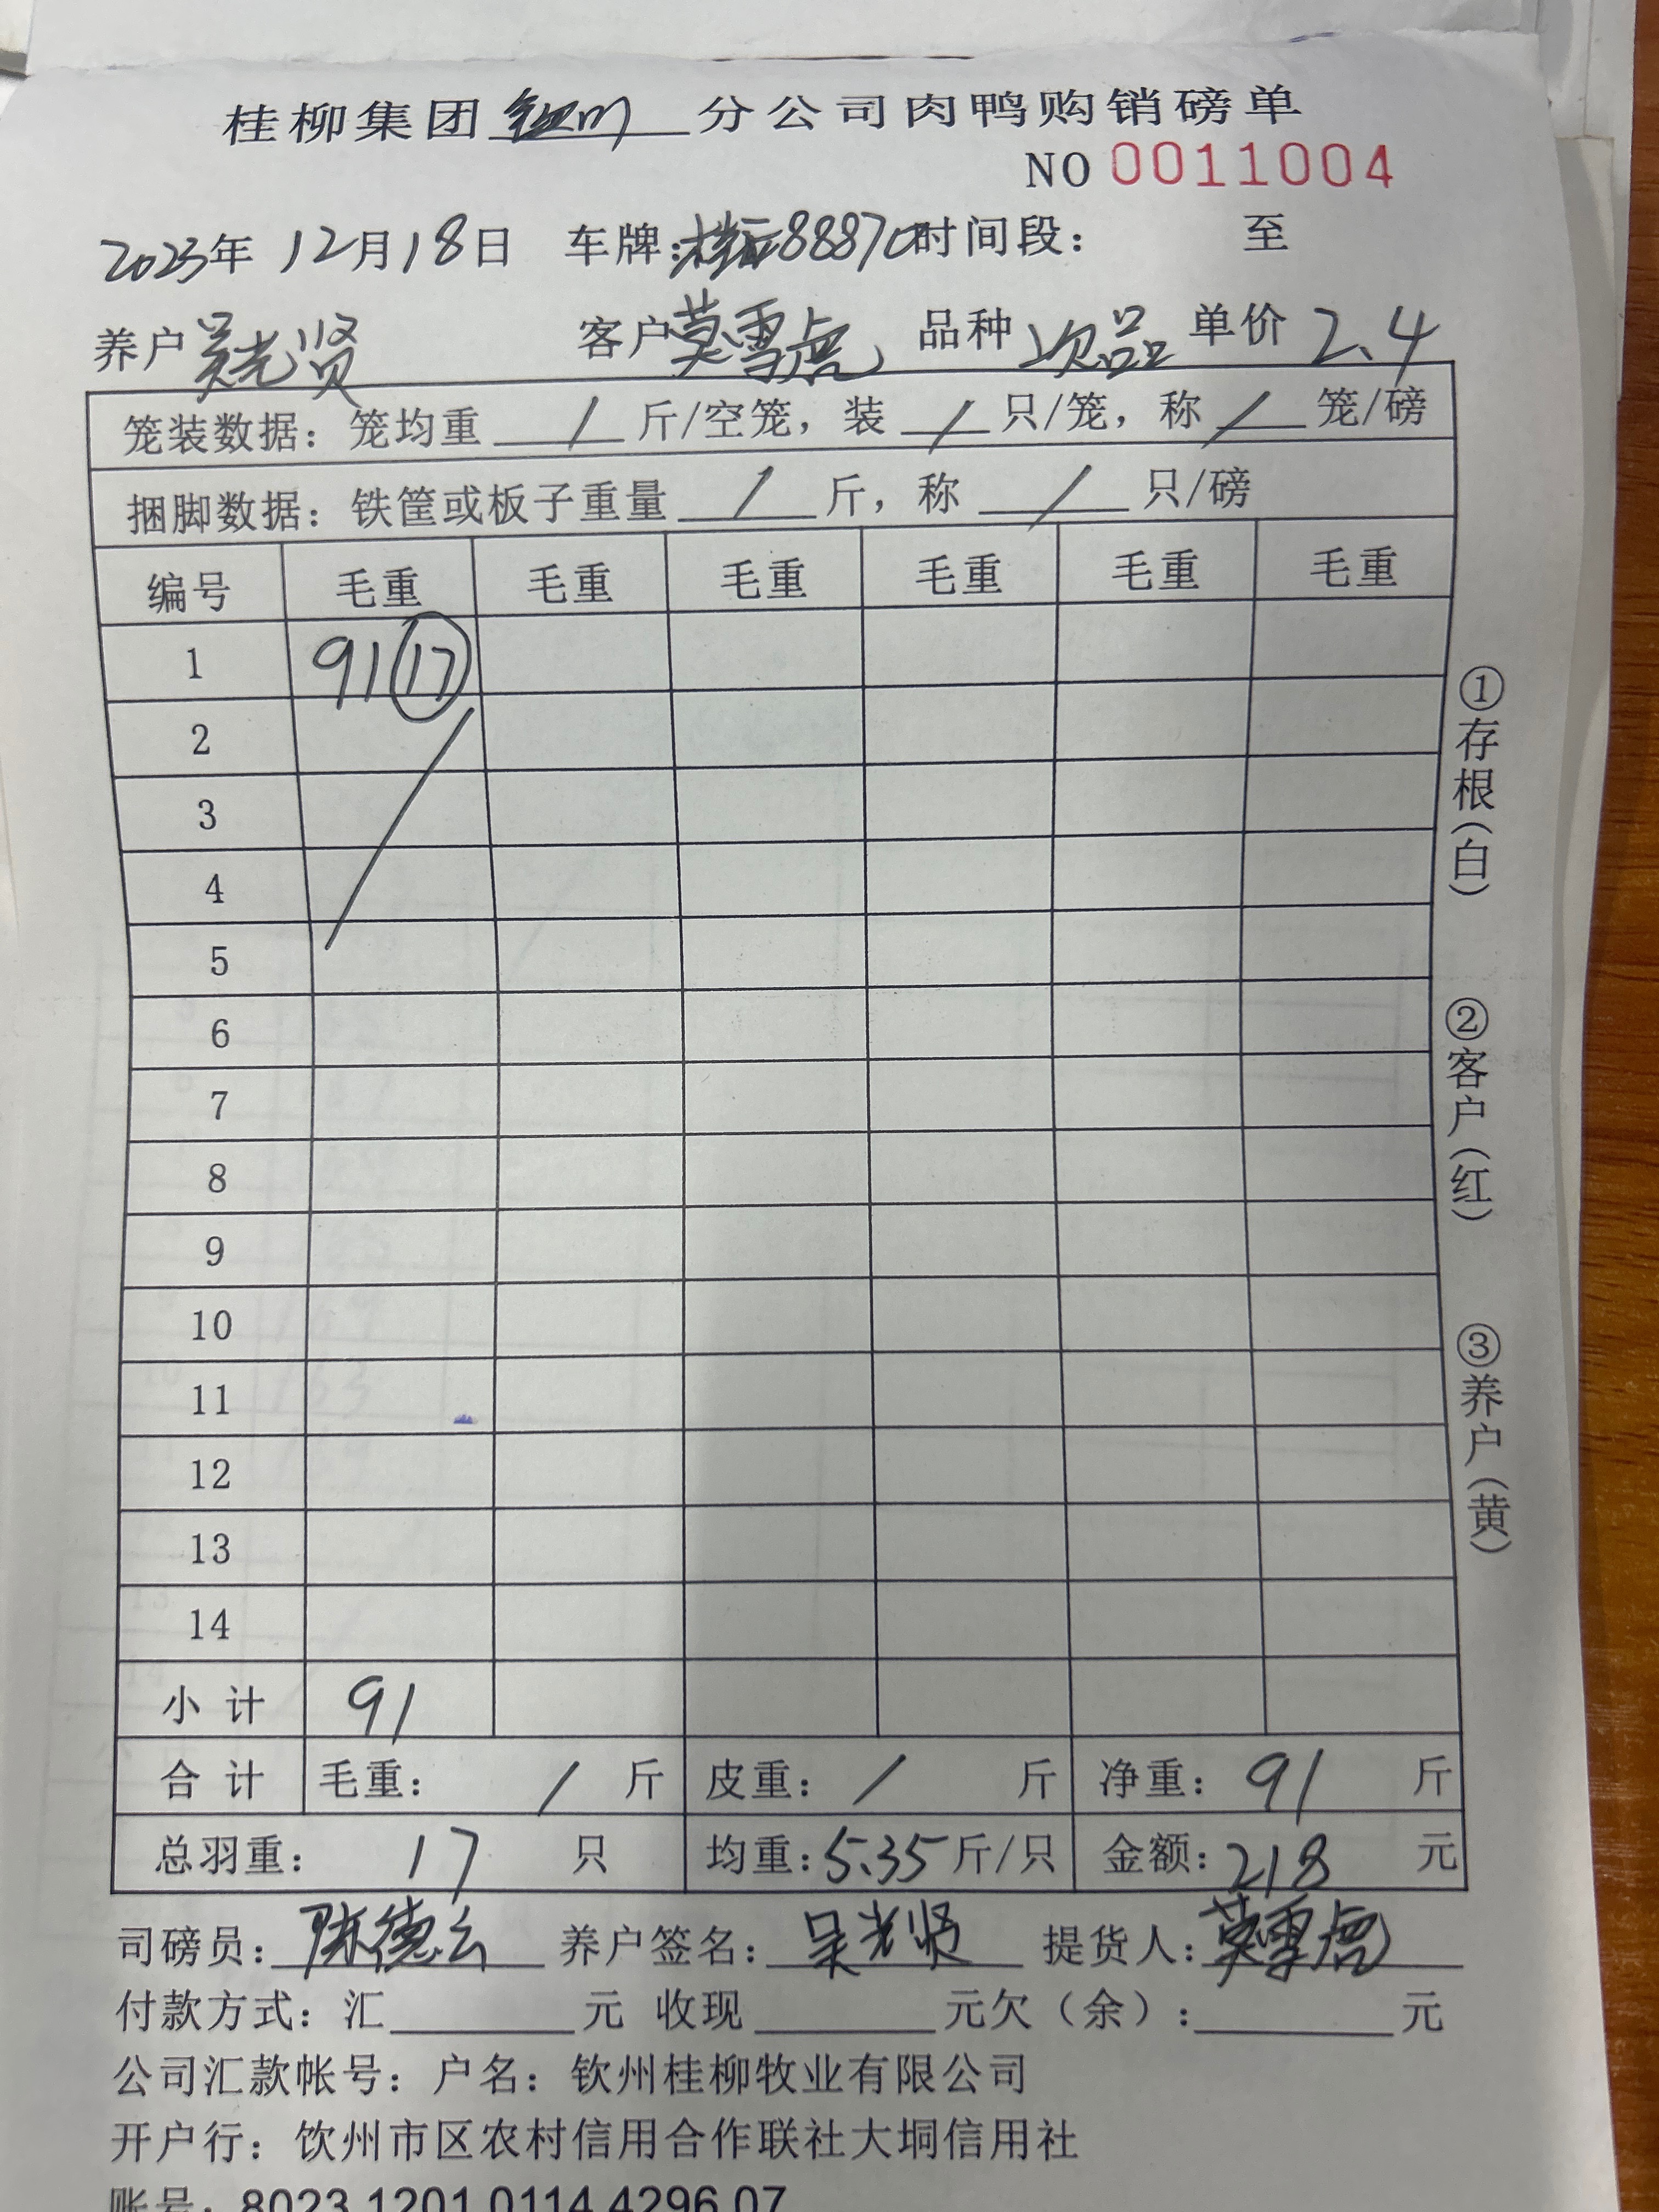 桂柳集团 钦州 分公司肉鸭购销磅单
NO 0011004
2023年 12月18日 车牌: 88870 时间段: 至
养户 吴光贤 客户 莫雪虎 品种 次品 单价 2.4
笼装数据: 笼均重 / 斤/空笼, 装 / 只/笼, 称 / 笼/磅
捆脚数据: 铁筐或板子重量 / 斤, 称 / 只/磅
编号 毛重 毛重 毛重 毛重 毛重 毛重
1 91 ⑰
2
3
4
5
6
7
8
9
10
11
12
13
14
小计 91
合计 毛重: / 斤 皮重: / 斤 净重: 91 斤
总羽重: 17 只 均重: 5.35 斤/只 金额: 218 元
司磅员: 陈德云 养户签名: 吴光贤 提货人: 莫雪虎
付款方式: 汇 元 收现 元欠(余): 元
公司汇款帐号: 户名: 钦州桂柳牧业有限公司
开户行: 饮州市区农村信用合作联社大垌信用社
账号: 8023 1201 0114 4296 07
①存根(白)
②客户(红)
③养户(黄)